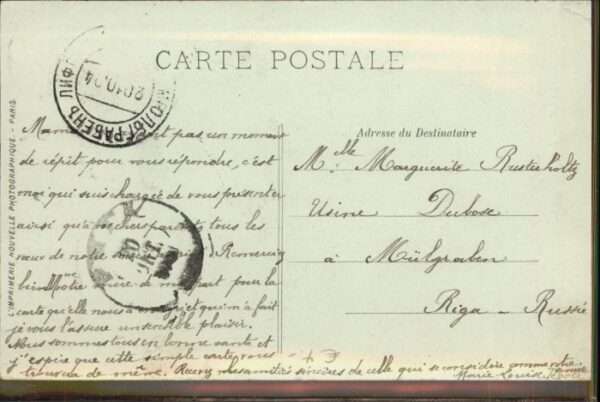 CARTE POSTALE
МЮЛЬГРАБЕНЪ
20.10.04
Maman pas un moment
de répit pour vous répondre, c'est
moi qui suis chargée de vous présenter
ainsi qu'à vos chers parents tous les
vœux de notre Remerciez
bien Mme votre mère de ma part pour la
carte qu'elle nous a et qui m'a fait
je vous l'assure un sensible plaisir.
Nous sommes tous en bonne santé et
j'espère que cette simple carte vous
trouvera de même. Recevez mes amitiés sincères de celle qui se considère comme votre
amie
Marie Louise
Adresse du Destinataire
Mlle Marguerite Rusterholtz
Usine Dubosc
à Mülgraben
Riga - Russie
L'IMPRIMERIE NOUVELLE PHOTOGRAPHIQUE - PARIS.